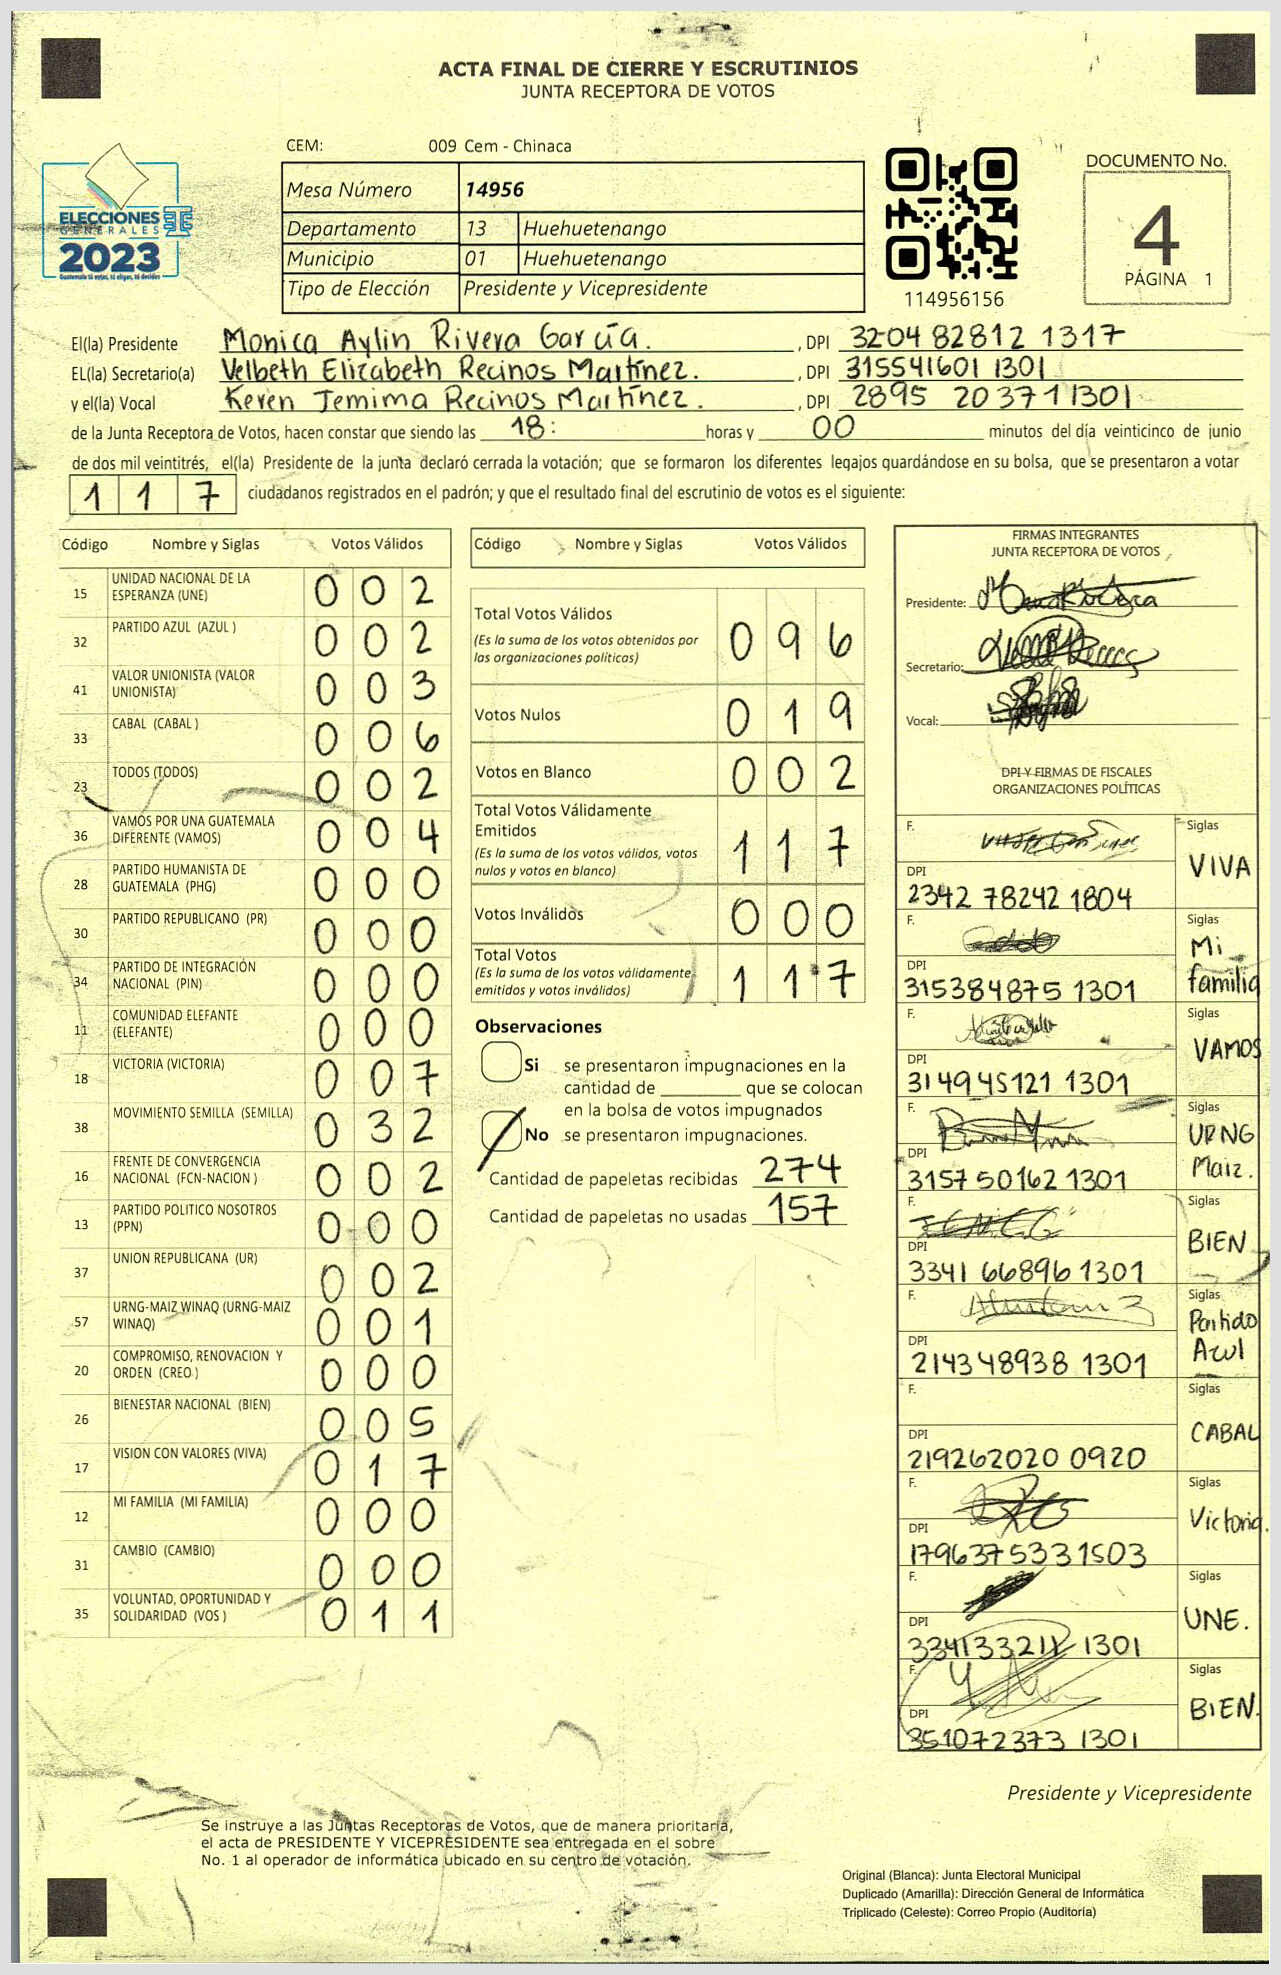 ACTA FINAL DE CIERRE Y ESCRUTINIOS
JUNTA RECEPTORA DE VOTOS
CEM: 009 Cem - Chinaca
Mesa Número 14956
Departamento 13 Huehuetenango
Municipio 01 Huehuetenango
Tipo de Elección Presidente y Vicepresidente
ELECCIONES
GENERALES
2023
114956156
DOCUMENTO No.
4
PÁGINA 1
El(la) Presidente Monica Aylin Rivera García. , DPI 3204 82812 1317
EL(la) Secretario(a) Velbeth Elizabeth Recinos Martínez. , DPI 315541601 1301
y el(la) Vocal Keren Jemima Recinos Martínez. , DPI 2895 20371 1301
de la Junta Receptora de Votos, hacen constar que siendo las 18: horas y 00 minutos del día veinticinco de junio
de dos mil veintitrés, el(la) Presidente de la junta declaró cerrada la votación; que se formaron los diferentes legajos guardándose en su bolsa, que se presentaron a votar
117 ciudadanos registrados en el padrón; y que el resultado final del escrutinio de votos es el siguiente:
Código Nombre y Siglas Votos Válidos
15 UNIDAD NACIONAL DE LA ESPERANZA (UNE) 002
32 PARTIDO AZUL (AZUL ) 002
41 VALOR UNIONISTA (VALOR UNIONISTA) 003
33 CABAL (CABAL ) 006
23 TODOS (TODOS) 002
36 VAMOS POR UNA GUATEMALA DIFERENTE (VAMOS) 004
28 PARTIDO HUMANISTA DE GUATEMALA (PHG) 000
30 PARTIDO REPUBLICANO (PR) 000
34 PARTIDO DE INTEGRACIÓN NACIONAL (PIN) 000
11 COMUNIDAD ELEFANTE (ELEFANTE) 000
18 VICTORIA (VICTORIA) 007
38 MOVIMIENTO SEMILLA (SEMILLA) 032
16 FRENTE DE CONVERGENCIA NACIONAL (FCN-NACION ) 002
13 PARTIDO POLITICO NOSOTROS (PPN) 000
37 UNION REPUBLICANA (UR) 002
57 URNG-MAIZ WINAQ (URNG-MAIZ WINAQ) 001
20 COMPROMISO, RENOVACION Y ORDEN (CREO ) 000
26 BIENESTAR NACIONAL (BIEN) 005
17 VISION CON VALORES (VIVA) 017
12 MI FAMILIA (MI FAMILIA) 000
31 CAMBIO (CAMBIO) 000
35 VOLUNTAD, OPORTUNIDAD Y SOLIDARIDAD (VOS ) 011
Código Nombre y Siglas Votos Válidos
Total Votos Válidos 096
(Es la suma de los votos obtenidos por
las organizaciones políticas)
Votos Nulos 019
Votos en Blanco 002
Total Votos Válidamente
Emitidos 117
(Es la suma de los votos válidos, votos
nulos y votos en blanco)
Votos Inválidos 000
Total Votos 117
(Es la suma de los votos válidamente
emitidos y votos inválidos)
Observaciones
Si se presentaron impugnaciones en la
cantidad de ________ que se colocan
en la bolsa de votos impugnados
No se presentaron impugnaciones.
Cantidad de papeletas recibidas 274
Cantidad de papeletas no usadas 157
FIRMAS INTEGRANTES
JUNTA RECEPTORA DE VOTOS
Presidente:
Secretario:
Vocal:
DPI Y FIRMAS DE FISCALES
ORGANIZACIONES POLÍTICAS
F. Siglas VIVA
DPI 2342 78242 1804
F. Siglas Mi familia
DPI 315384875 1301
F. Siglas VAMOS
DPI 314945121 1301
F. Siglas URNG Maiz.
DPI 3157 50162 1301
F. Siglas BIEN
DPI 3341 66896 1301
F. Siglas Partido Azul
DPI 214348938 1301
F. Siglas CABAL
DPI 219262020 0920
F. Siglas Victoria.
DPI 1796375331503
F. Siglas UNE.
DPI 334133211 1301
F. Siglas BIEN.
DPI 351072373 1301
Presidente y Vicepresidente
Se instruye a las Juntas Receptoras de Votos, que de manera prioritaria,
el acta de PRESIDENTE Y VICEPRESIDENTE sea entregada en el sobre
No. 1 al operador de informática ubicado en su centro de votación.
Original (Blanca): Junta Electoral Municipal
Duplicado (Amarilla): Dirección General de Informática
Triplicado (Celeste): Correo Propio (Auditoría)